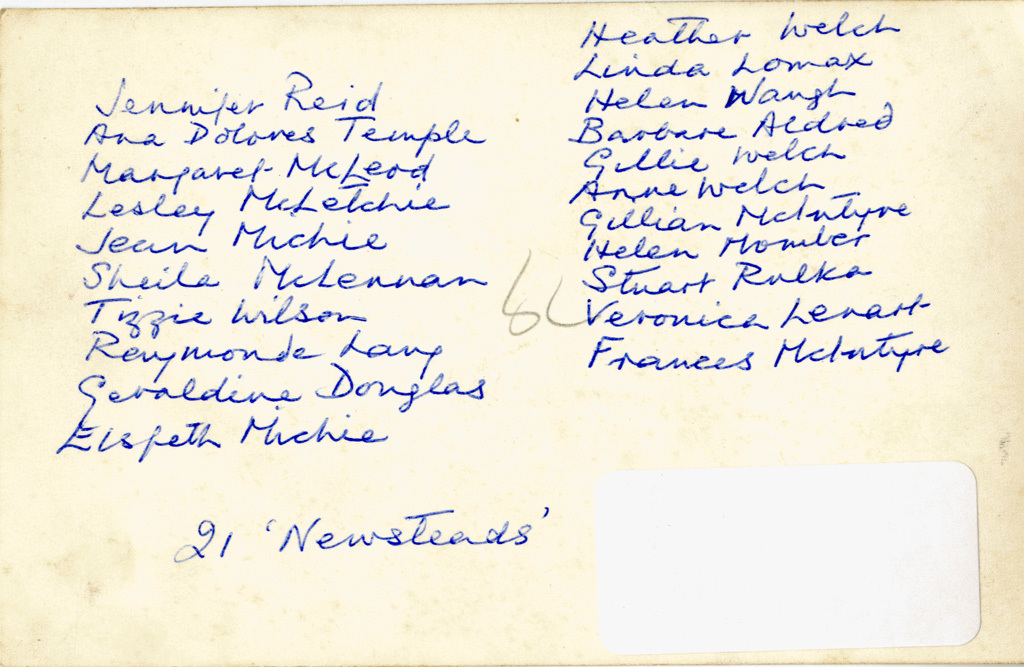 Jennifer Reid
Ana Dolores Temple
Margaret McLeod
Lesley McLetchie
Jean Michie
Sheila McLennan
Tizzie Wilson
Reymonde Lang
Geraldine Douglas
Elspeth Michie
Heather Welch
Linda Lomax
Helen Waugh
Barbara Aldred
Gillie Welch
Anne Welch
Gillian McIntyre
Helen
Stuart Rulka
Veronica Lenart
Frances McIntyre
21 'Newsteads'